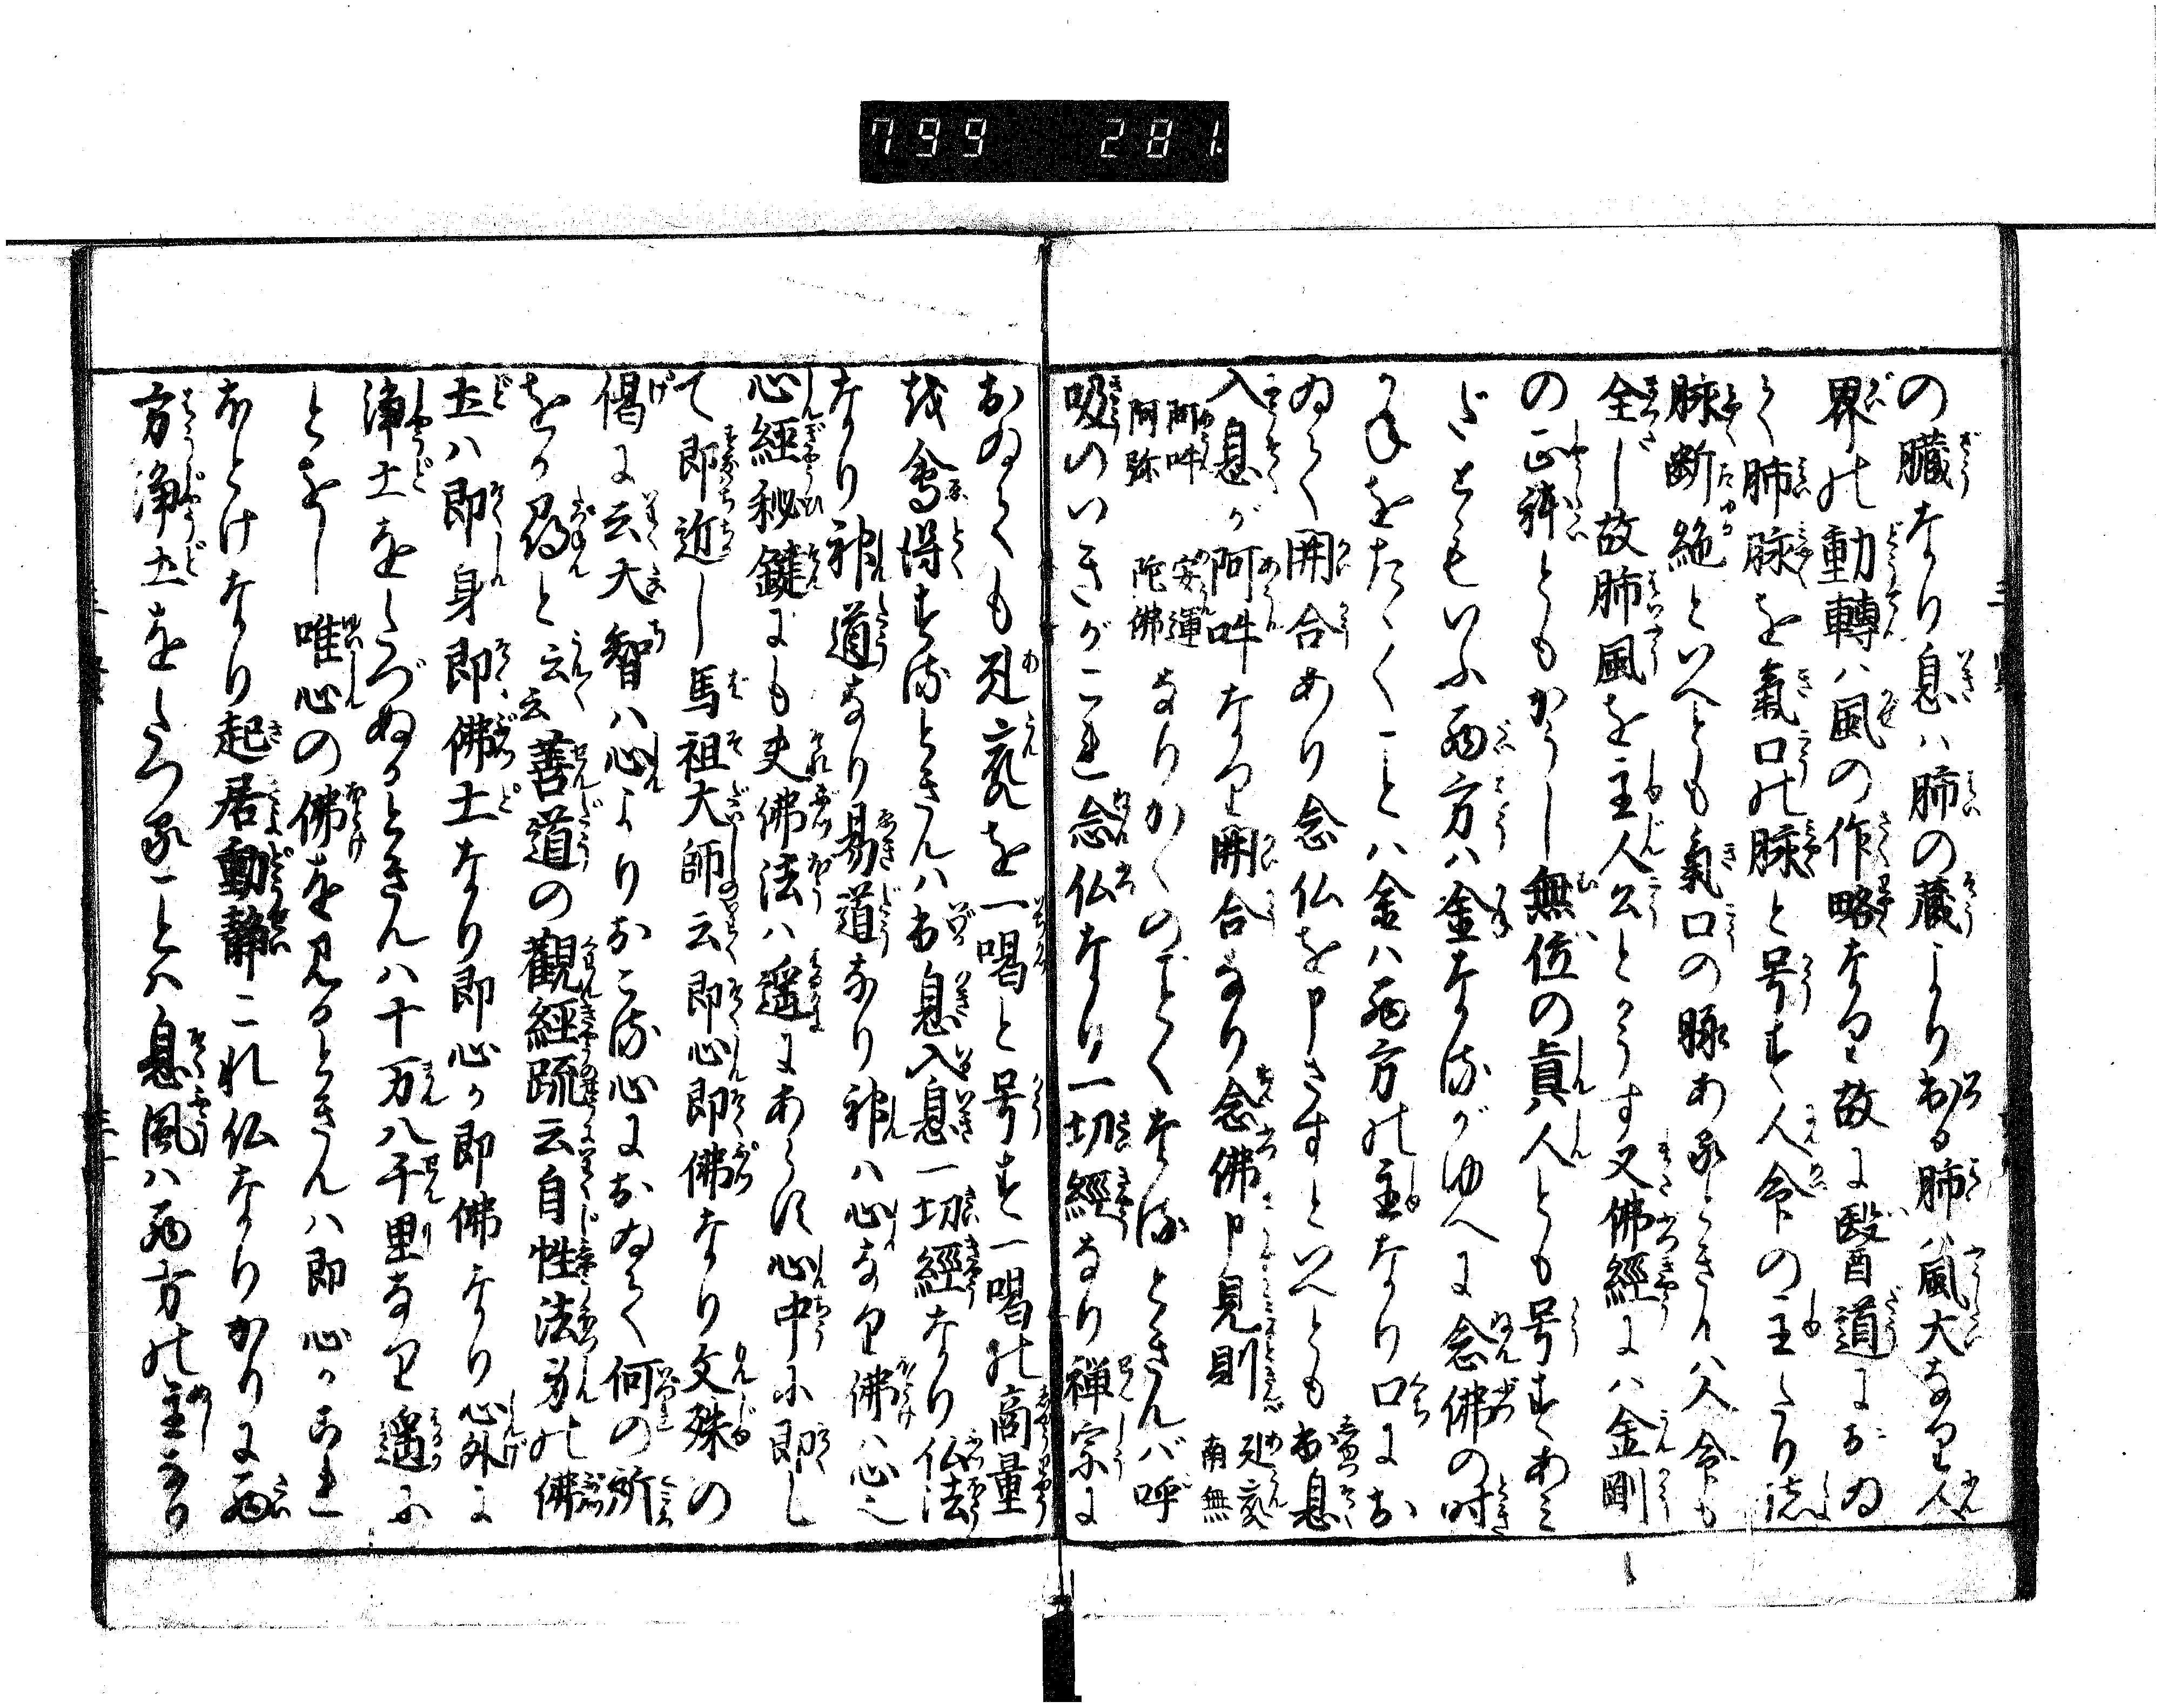 799 281
の臓なり息ハ肺の蔵より出る肺ハ風大なり人
界の動轉ハ風の作略なり故に醫道におゐ
て肺脉を氣口の脉と号す人命の主たり諸
脉断絶といへとも氣口の脉あるときハ人命も
全し故肺風を主人公とかうす又佛經にハ金剛
の正躰ともかうし無位の真人とも号すあミ
だともいふ西方ハ金なるがゆへに念佛の時
かねをたゝくことハ金ハ西方の主なり口にお
ゐて開合あり念仏を申さすといへとも出息
入息が阿吽なり開合なり念佛申見則
阿吽 阿弥 安運 陀佛 なりかくのごとくなるときんバ呼
吸のいきがこれ念仏なり一切經なり禅宗に
おゐても を一喝と号す一喝の商量
を會得するときんハ出息入息一切經なり仏法
なり神道なり易道なり神ハ心なり佛ハ心也
心經秘鍵にも夫佛法ハ遥にあらす心中に即し
て即近し馬祖大師云即心即佛なり文殊の
偈に云大智ハ心よりおこる心におゐて何の所
をか尋と云云善道の觀經疏云自性法身の佛
土ハ即身即佛土なり即心か即佛なり心外に
浄土をたづぬるときんハ十万八千里なり遥に
とをし唯心の佛を見るときんハ即心かこれ
ほとけなり起居動静これ仏なりかりに西
方浄土をたつることハ息風ハ西方の主なり